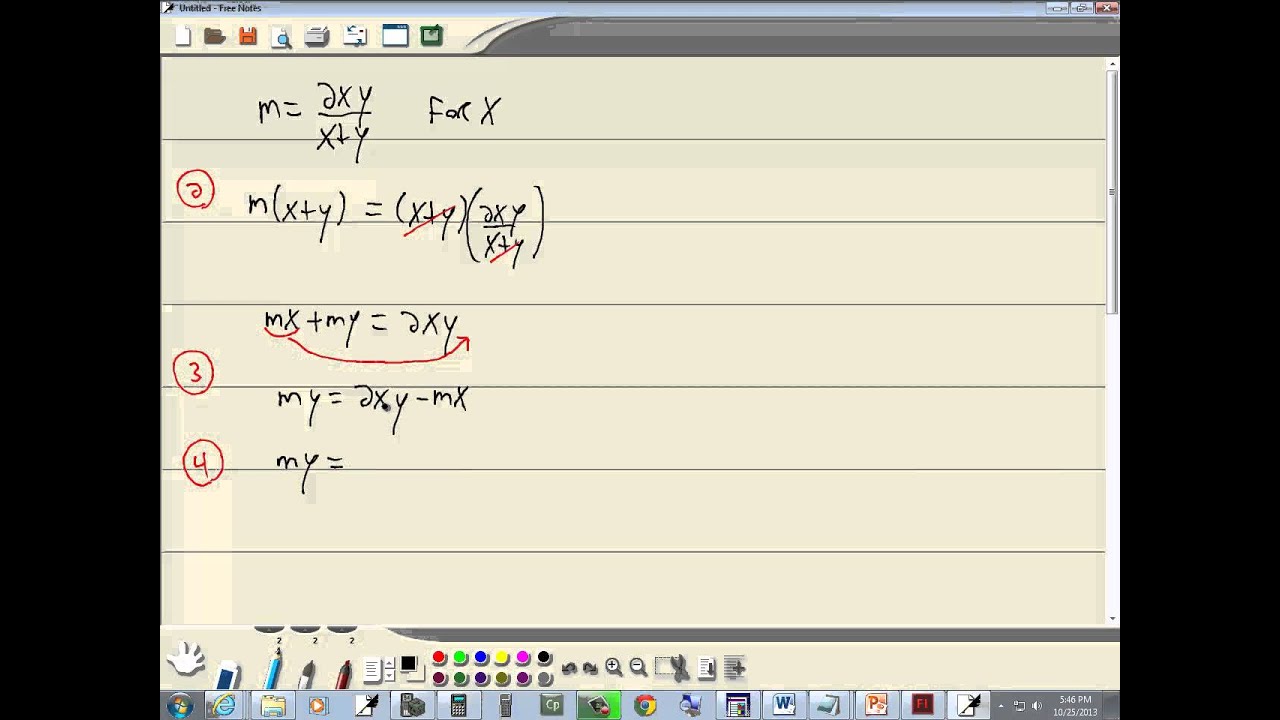 Untitled - Free Notes
m = 2xy/x+y For X
② m(x+y) = (x+y)(2xy/x+y)
mx + my = 2xy
③
my = 2xy - mx
④ my =
2 2 2
Cp W P Fl
5:46 PM
10/25/2013